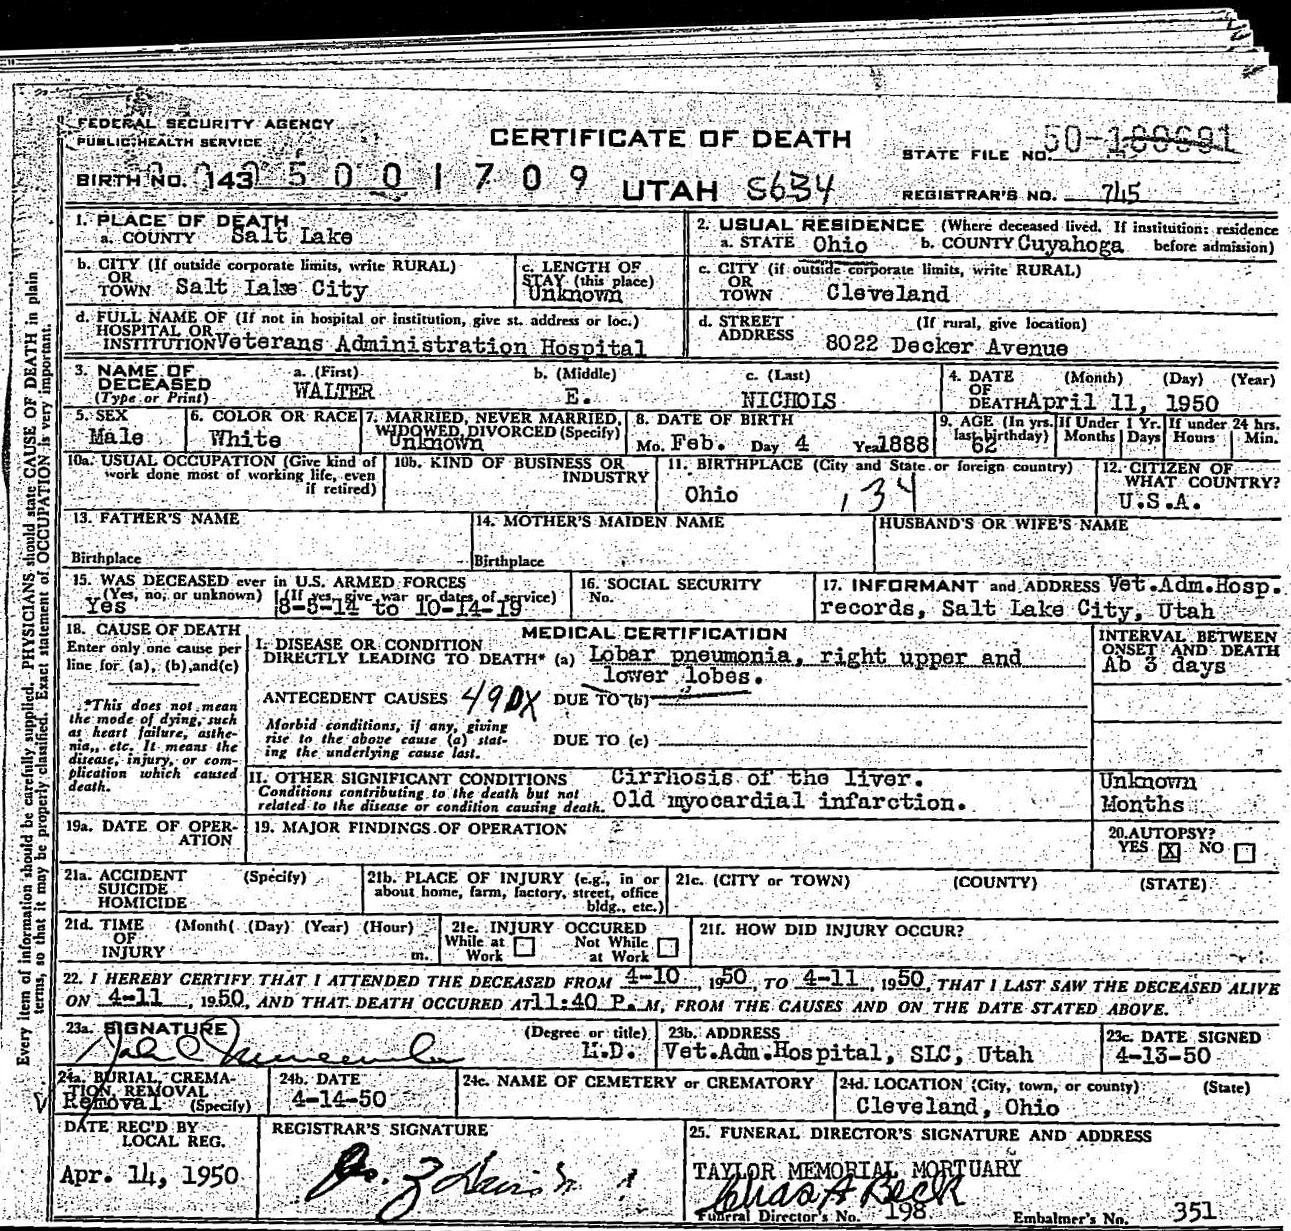 FEDERAL SECURITY AGENCY
PUBLIC HEALTH SERVICE
CERTIFICATE OF DEATH
STATE FILE NO. 50-
BIRTH NO. 143 5 0 0 1 7 0 9
UTAH S634
REGISTRAR'S NO. 745
1. PLACE OF DEATH
a. COUNTY Salt Lake
2. USUAL RESIDENCE (Where deceased lived. If institution: residence
a. STATE Ohio b. COUNTY Cuyahoga before admission)
b. CITY (If outside corporate limits, write RURAL)
OR
TOWN Salt Lake City
c. LENGTH OF
STAY (this place)
Unknown
c. CITY (if outside corporate limits, write RURAL)
OR
TOWN Cleveland
d. FULL NAME OF (If not in hospital or institution, give st. address or loc.)
HOSPITAL OR
INSTITUTION Veterans Administration Hospital
d. STREET (If rural, give location)
ADDRESS 8022 Decker Avenue
3. NAME OF a. (First) b. (Middle) c. (Last)
DECEASED
(Type or Print) WALTER E. NICHOLS
4. DATE (Month) (Day) (Year)
OF
DEATH April 11, 1950
5. SEX
Male
6. COLOR OR RACE
White
7. MARRIED, NEVER MARRIED,
WIDOWED, DIVORCED (Specify)
Unknown
8. DATE OF BIRTH
Mo. Feb. Day 4 Year 1888
9. AGE (In yrs. If Under 1 Yr. If under 24 hrs.
last birthday) Months Days Hours Min.
62
10a. USUAL OCCUPATION (Give kind of
work done most of working life, even
if retired)
10b. KIND OF BUSINESS OR
INDUSTRY
11. BIRTHPLACE (City and State or foreign country)
Ohio 134
12. CITIZEN OF
WHAT COUNTRY?
U.S.A.
13. FATHER'S NAME
Birthplace
14. MOTHER'S MAIDEN NAME
Birthplace
HUSBAND'S OR WIFE'S NAME
15. WAS DECEASED ever in U.S. ARMED FORCES
(Yes, no, or unknown) (If yes, give war or dates of service)
Yes 8-5-14 to 10-14-19
16. SOCIAL SECURITY
No.
17. INFORMANT and ADDRESS Vet.Adm.Hosp.
records, Salt Lake City, Utah
18. CAUSE OF DEATH
Enter only one cause per
line for (a), (b),and(c)
*This does not mean
the mode of dying, such
as heart failure, asthe-
nia,, etc. It means the
disease, injury, or com-
plication which caused
death.
MEDICAL CERTIFICATION
I. DISEASE OR CONDITION
DIRECTLY LEADING TO DEATH* (a) Lobar pneumonia, right upper and
lower lobes.
ANTECEDENT CAUSES 490X DUE TO (b)
Morbid conditions, if any, giving
rise to the above cause (a) stat-
ing the underlying cause last.
DUE TO (c)
INTERVAL BETWEEN
ONSET AND DEATH
Ab 3 days
II. OTHER SIGNIFICANT CONDITIONS
Conditions contributing to the death but not
related to the disease or condition causing death.
Cirrhosis of the liver.
Old myocardial infarction.
Unknown
Months
19a. DATE OF OPER-
ATION
19. MAJOR FINDINGS OF OPERATION
20. AUTOPSY?
YES X NO
21a. ACCIDENT (Specify)
SUICIDE
HOMICIDE
21b. PLACE OF INJURY (e.g., in or
about home, farm, factory, street, office
bldg., etc.)
21c. (CITY or TOWN) (COUNTY) (STATE)
21d. TIME (Month( (Day) (Year) (Hour)
OF
INJURY m.
21e. INJURY OCCURED
While at Not While
Work at Work
21f. HOW DID INJURY OCCUR?
22. I HEREBY CERTIFY THAT I ATTENDED THE DECEASED FROM 4-10, 1950, TO 4-11, 1950, THAT I LAST SAW THE DECEASED ALIVE
ON 4-11, 1950, AND THAT DEATH OCCURED AT 11:40 P. M, FROM THE CAUSES AND ON THE DATE STATED ABOVE.
23a. SIGNATURE (Degree or title)
M.D.
23b. ADDRESS
Vet.Adm.Hospital, SLC, Utah
23c. DATE SIGNED
4-13-50
24a. BURIAL, CREMA-
TION, REMOVAL
Removal (Specify)
24b. DATE
4-14-50
24c. NAME OF CEMETERY or CREMATORY
24d. LOCATION (City, town, or county) (State)
Cleveland, Ohio
DATE REC'D BY
LOCAL REG.
Apr. 14, 1950
REGISTRAR'S SIGNATURE
25. FUNERAL DIRECTOR'S SIGNATURE AND ADDRESS
TAYLOR MEMORIAL MORTUARY
Chas A Beck
Funeral Director's No. 198 Embalmer's No. 351
Every item of information should be carefully supplied. PHYSICIANS should state CAUSE OF DEATH in plain
terms, so that it may be properly classified. Exact statement of OCCUPATION is very important.